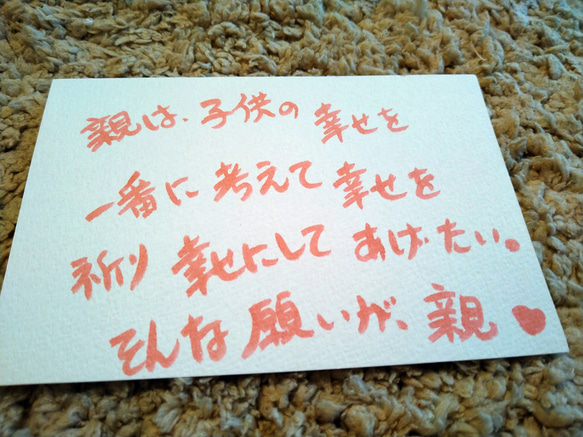 親は、子供の幸せを
一番に考えて幸せを
祈り幸せにしてあげたい。
そんな願いが、親♥